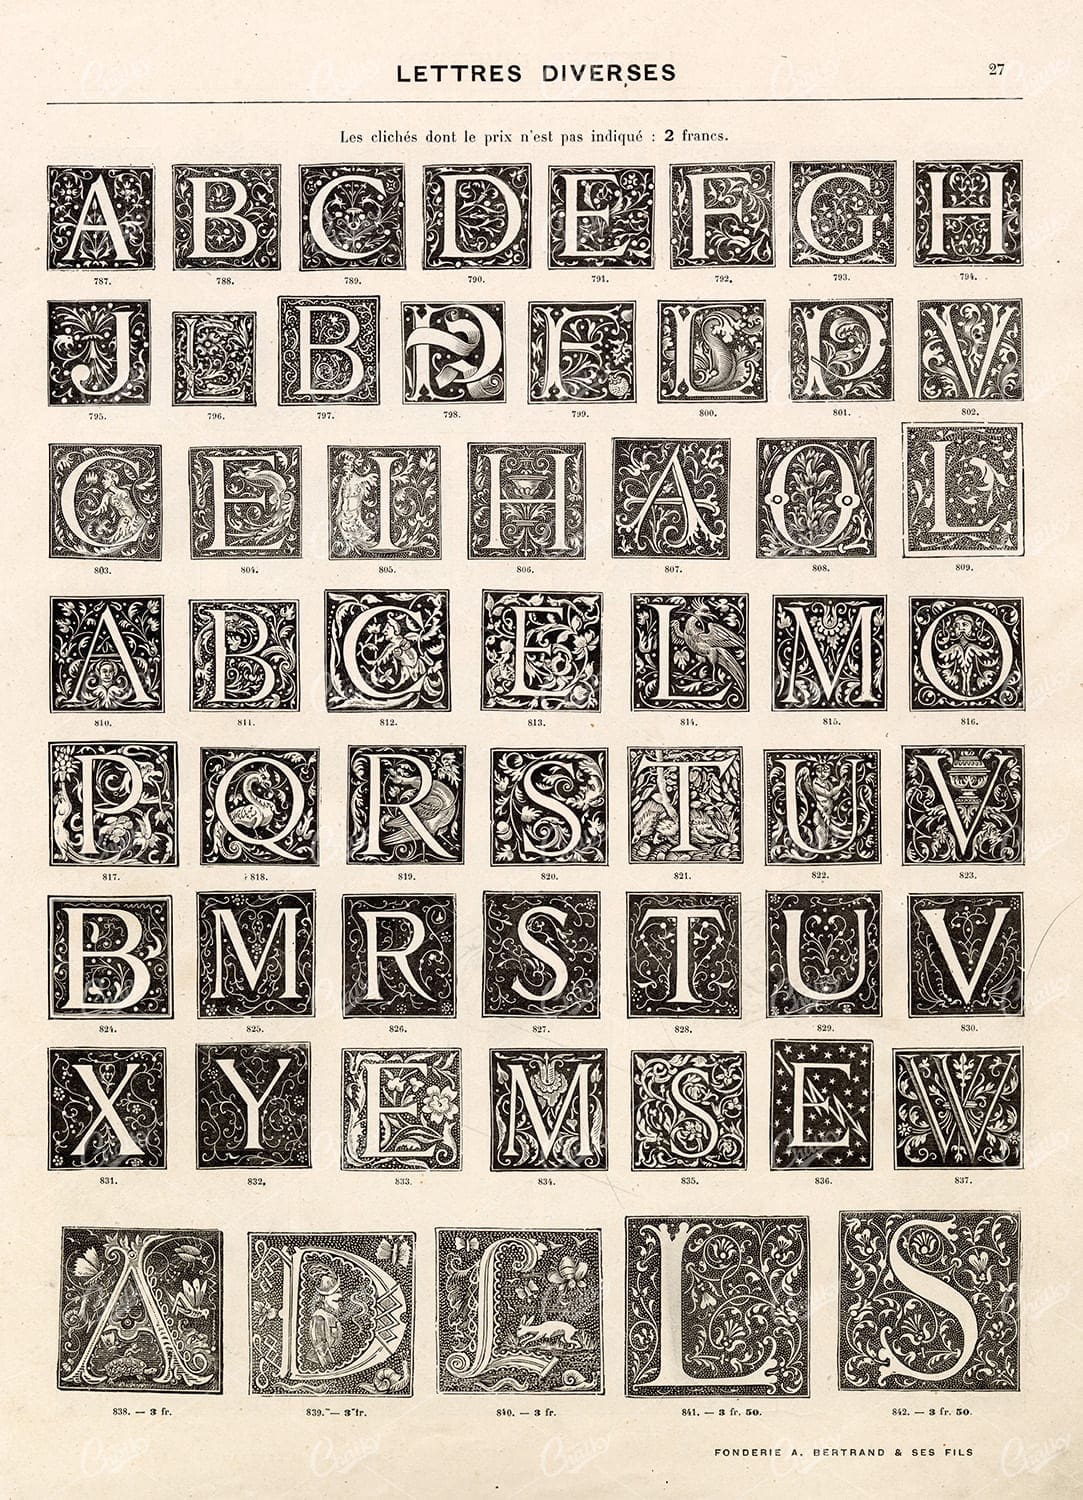 LETTRES DIVERSES
27
Les clichés dont le prix n'est pas indiqué : 2 francs.
A B C D E F G H
787. 788. 789. 790. 791. 792. 793. 794.
J L B P F L P V
795. 796. 797. 798. 799. 800. 801. 802.
C E I H A O L
803. 804. 805. 806. 807. 808. 809.
A B C E L M O
810. 811. 812. 813. 814. 815. 816.
P Q R S T U V
817. 818. 819. 820. 821. 822. 823.
B M R S T U V
824. 825. 826. 827. 828. 829. 830.
X Y E M S E W
831. 832. 833. 834. 835. 836. 837.
A D L L S
838. — 3 fr. 839. — 3 fr. 840. — 3 fr. 841. — 3 fr. 50. 842. — 3 fr. 50.
FONDERIE A. BERTRAND & SES FILS